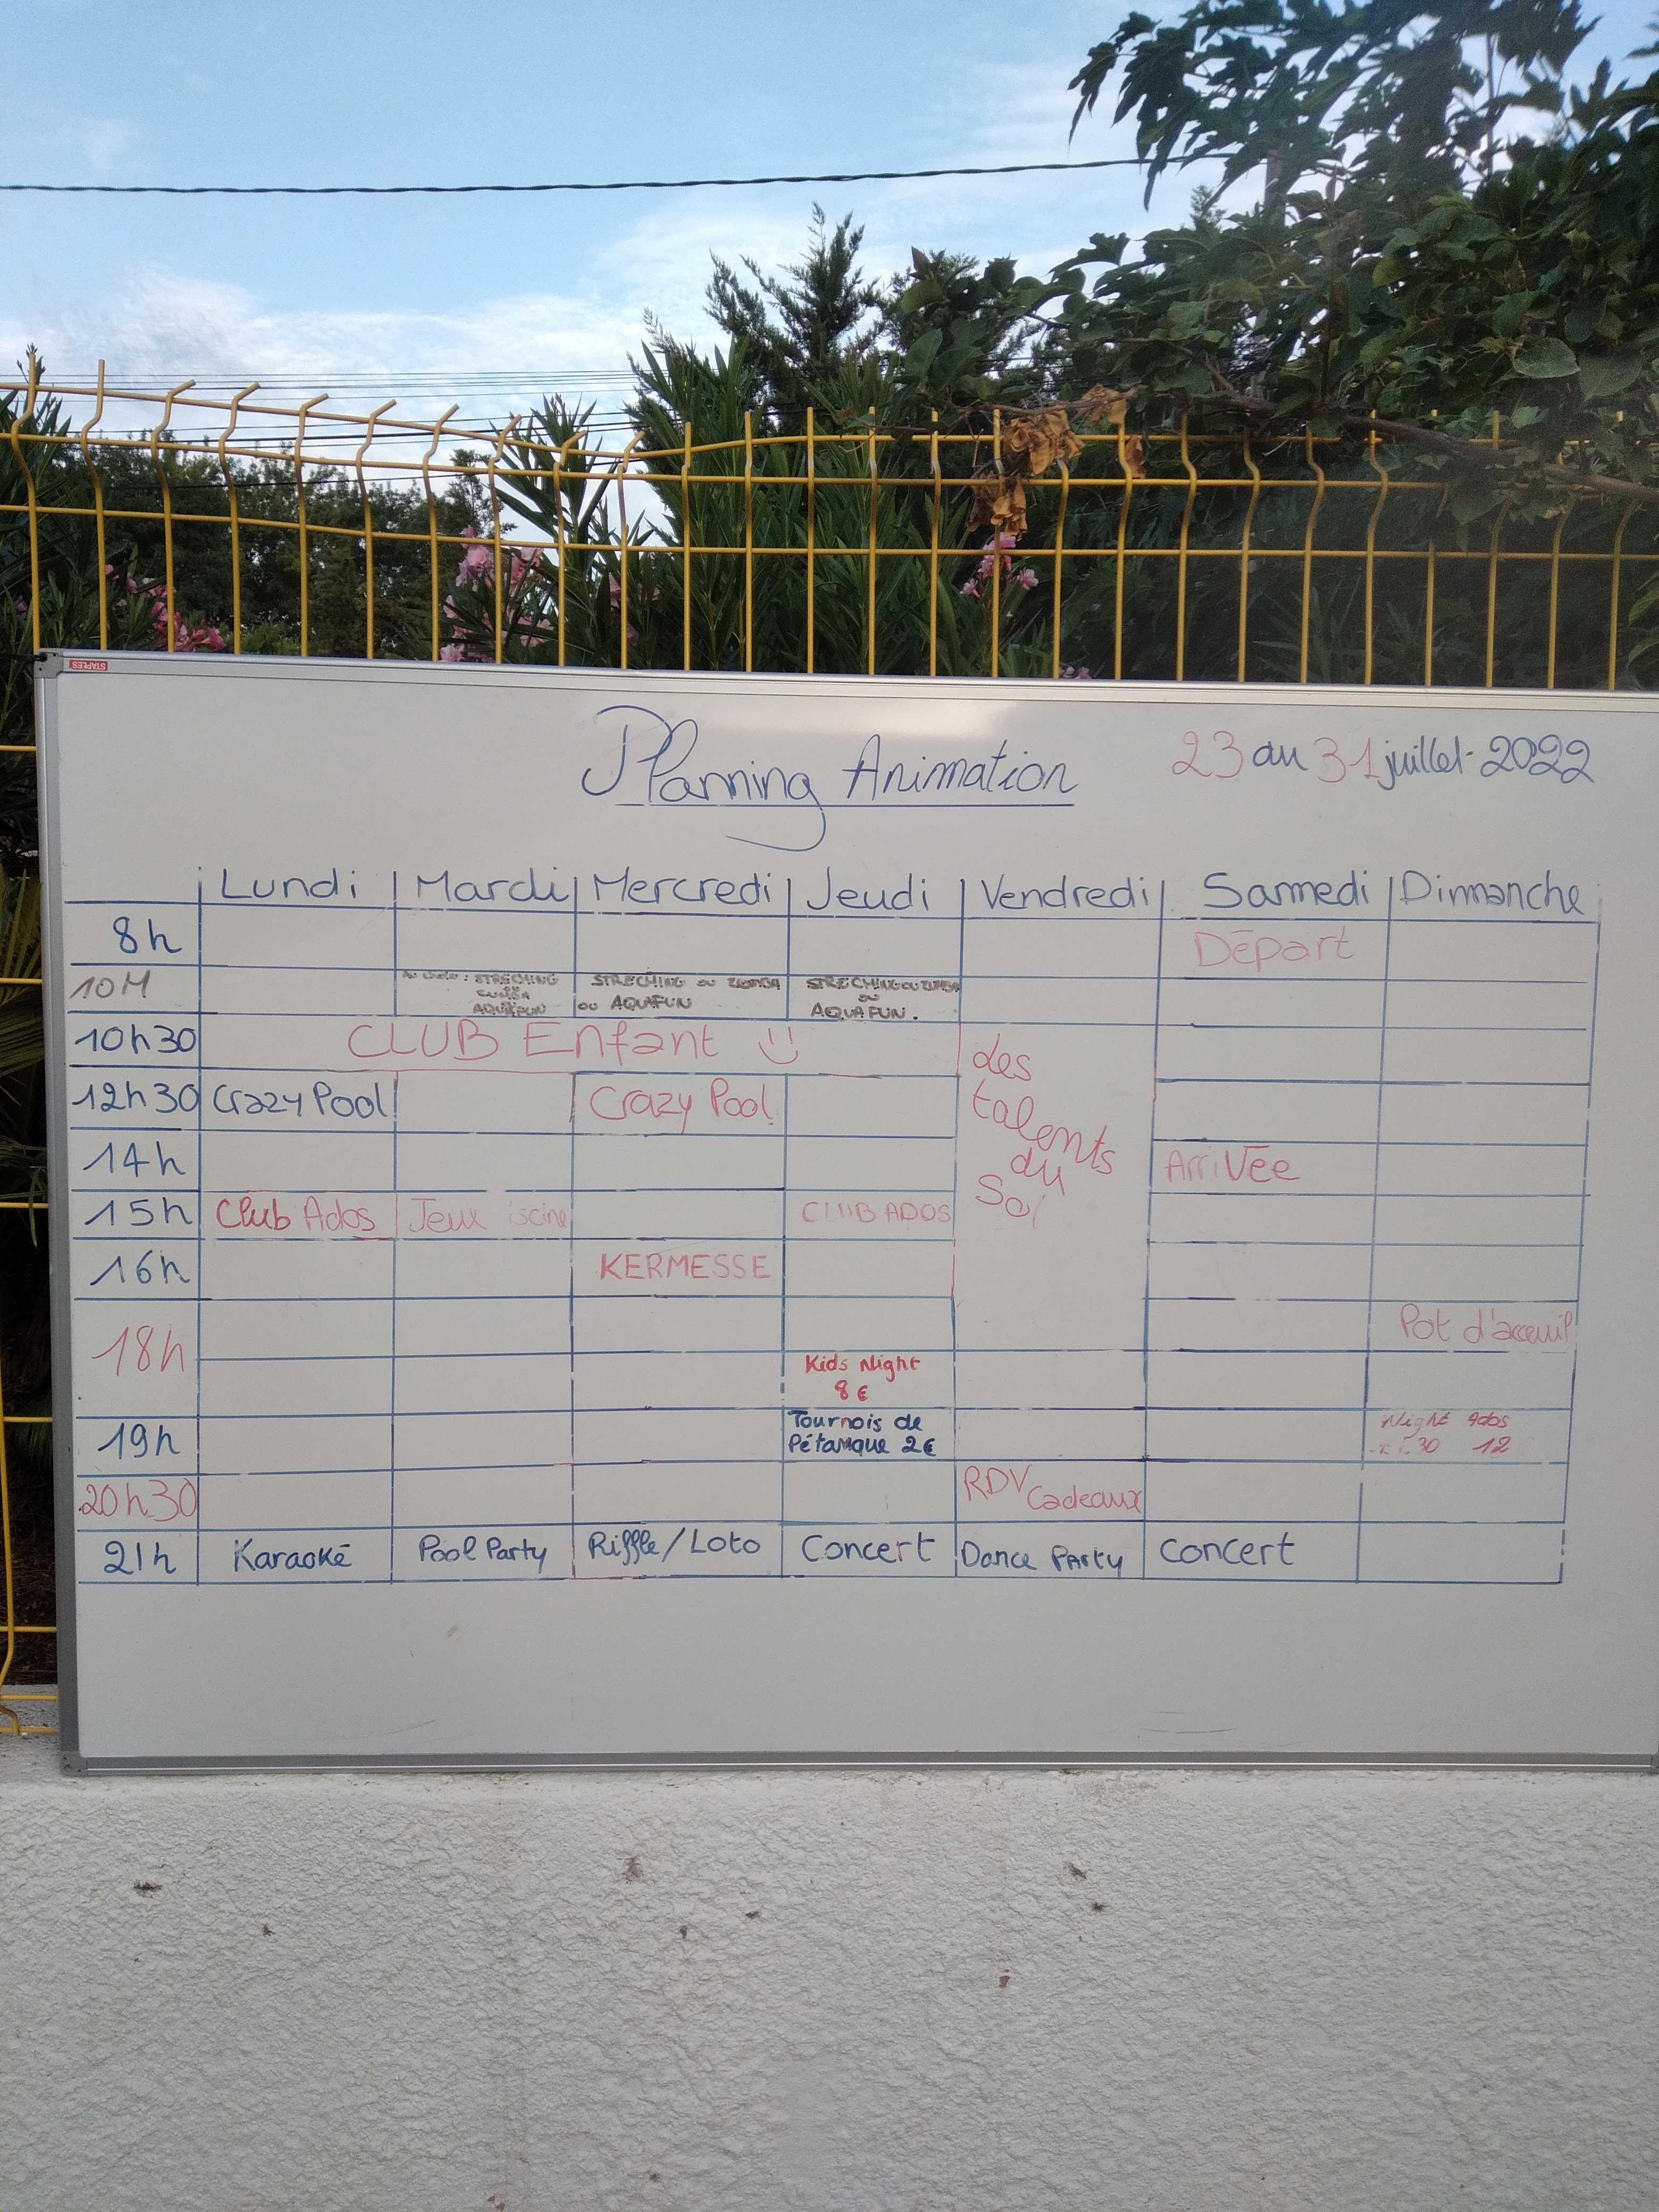 STAPLES
Planning Animation
23 au 31 juillet 2022
Lundi Mardi Mercredi Jeudi Vendredi Samedi Dimanche
8h Départ
10H Au choix : STRECHING STRECHING ou ZUMBA STRECHING ou ZUMBA
ZUMBA ou
AQUAFUN ou AQUAFUN AQUAFUN.
10h30 CLUB Enfant
des
talents
du
Sol
12h30 Crazy Pool Crazy Pool
14h Arrivée
15h Club Ados Jeux iscine CLUB ADOS
16h KERMESSE
18h Pot d'acceuil
Kids Night
8€
19h Tournois de Night Ados
Pétanque 2€ 30 12
20h30 RDV Cadeaux
21h Karaoké Pool Party Riffle/Loto Concert Dance PArty Concert